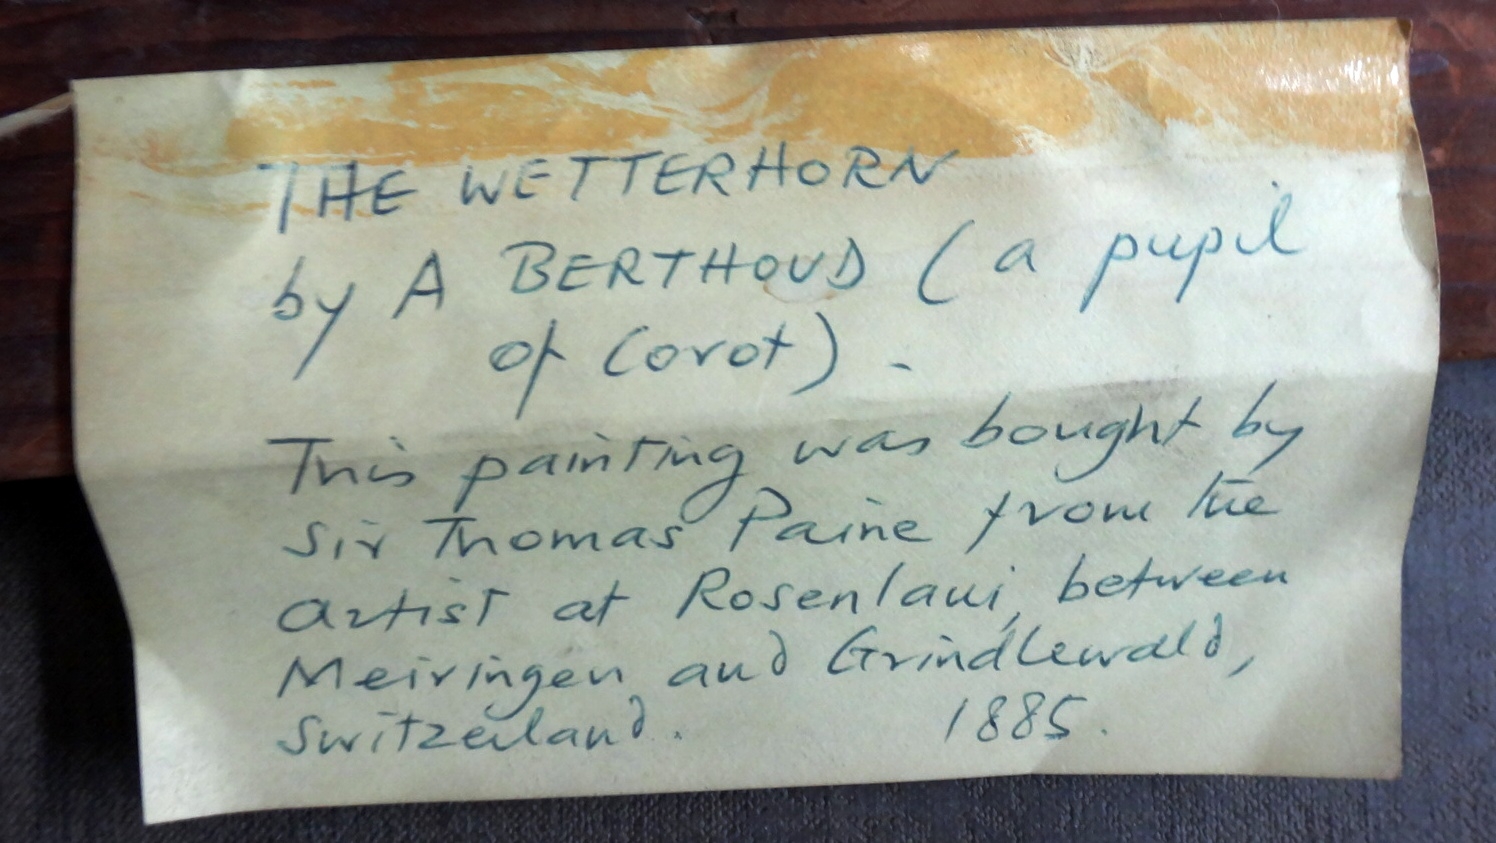 THE WETTERHORN
by A BERTHOUD (a pupil
of Corot).
This painting was bought by
Sir Thomas Paine from the
artist at Rosenlaui, between
Meiringen and Grindlewald,
Switzerland. 1885.